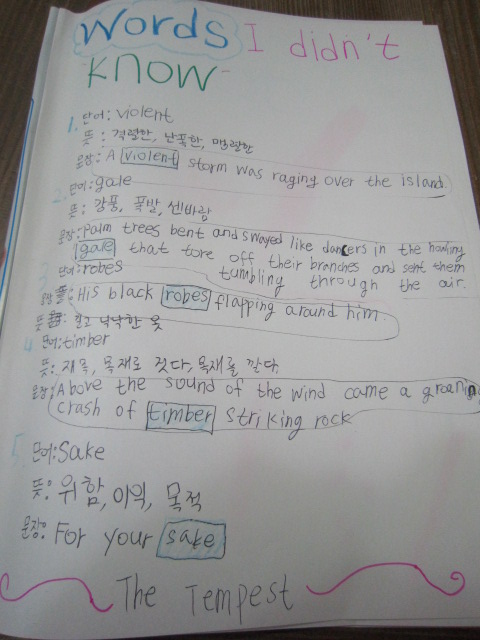 Words I didn't
KNOW
1. 단어: violent
뜻: 격렬한, 난폭한, 맹렬한
문장: A violent storm was raging over the island.
2. 단어: gale
뜻: 강풍, 폭발, 센바람
문장: Palm trees bent and swayed like dancers in the howling
gale that tore off their branches and sent them
tumbling through the air.
3. 단어: robes
문장: His black robes flapping around him.
뜻: 길고 낙낙한 옷
4. 단어: timber
뜻: 재목, 욕재로 짓다, 욕재를 깔다
문장: Above the sound of the wind came a groaning
crash of timber striking rock
5. 단어: Sake
뜻: 위함, 이익, 목적
문장: For your sake
The Tempest